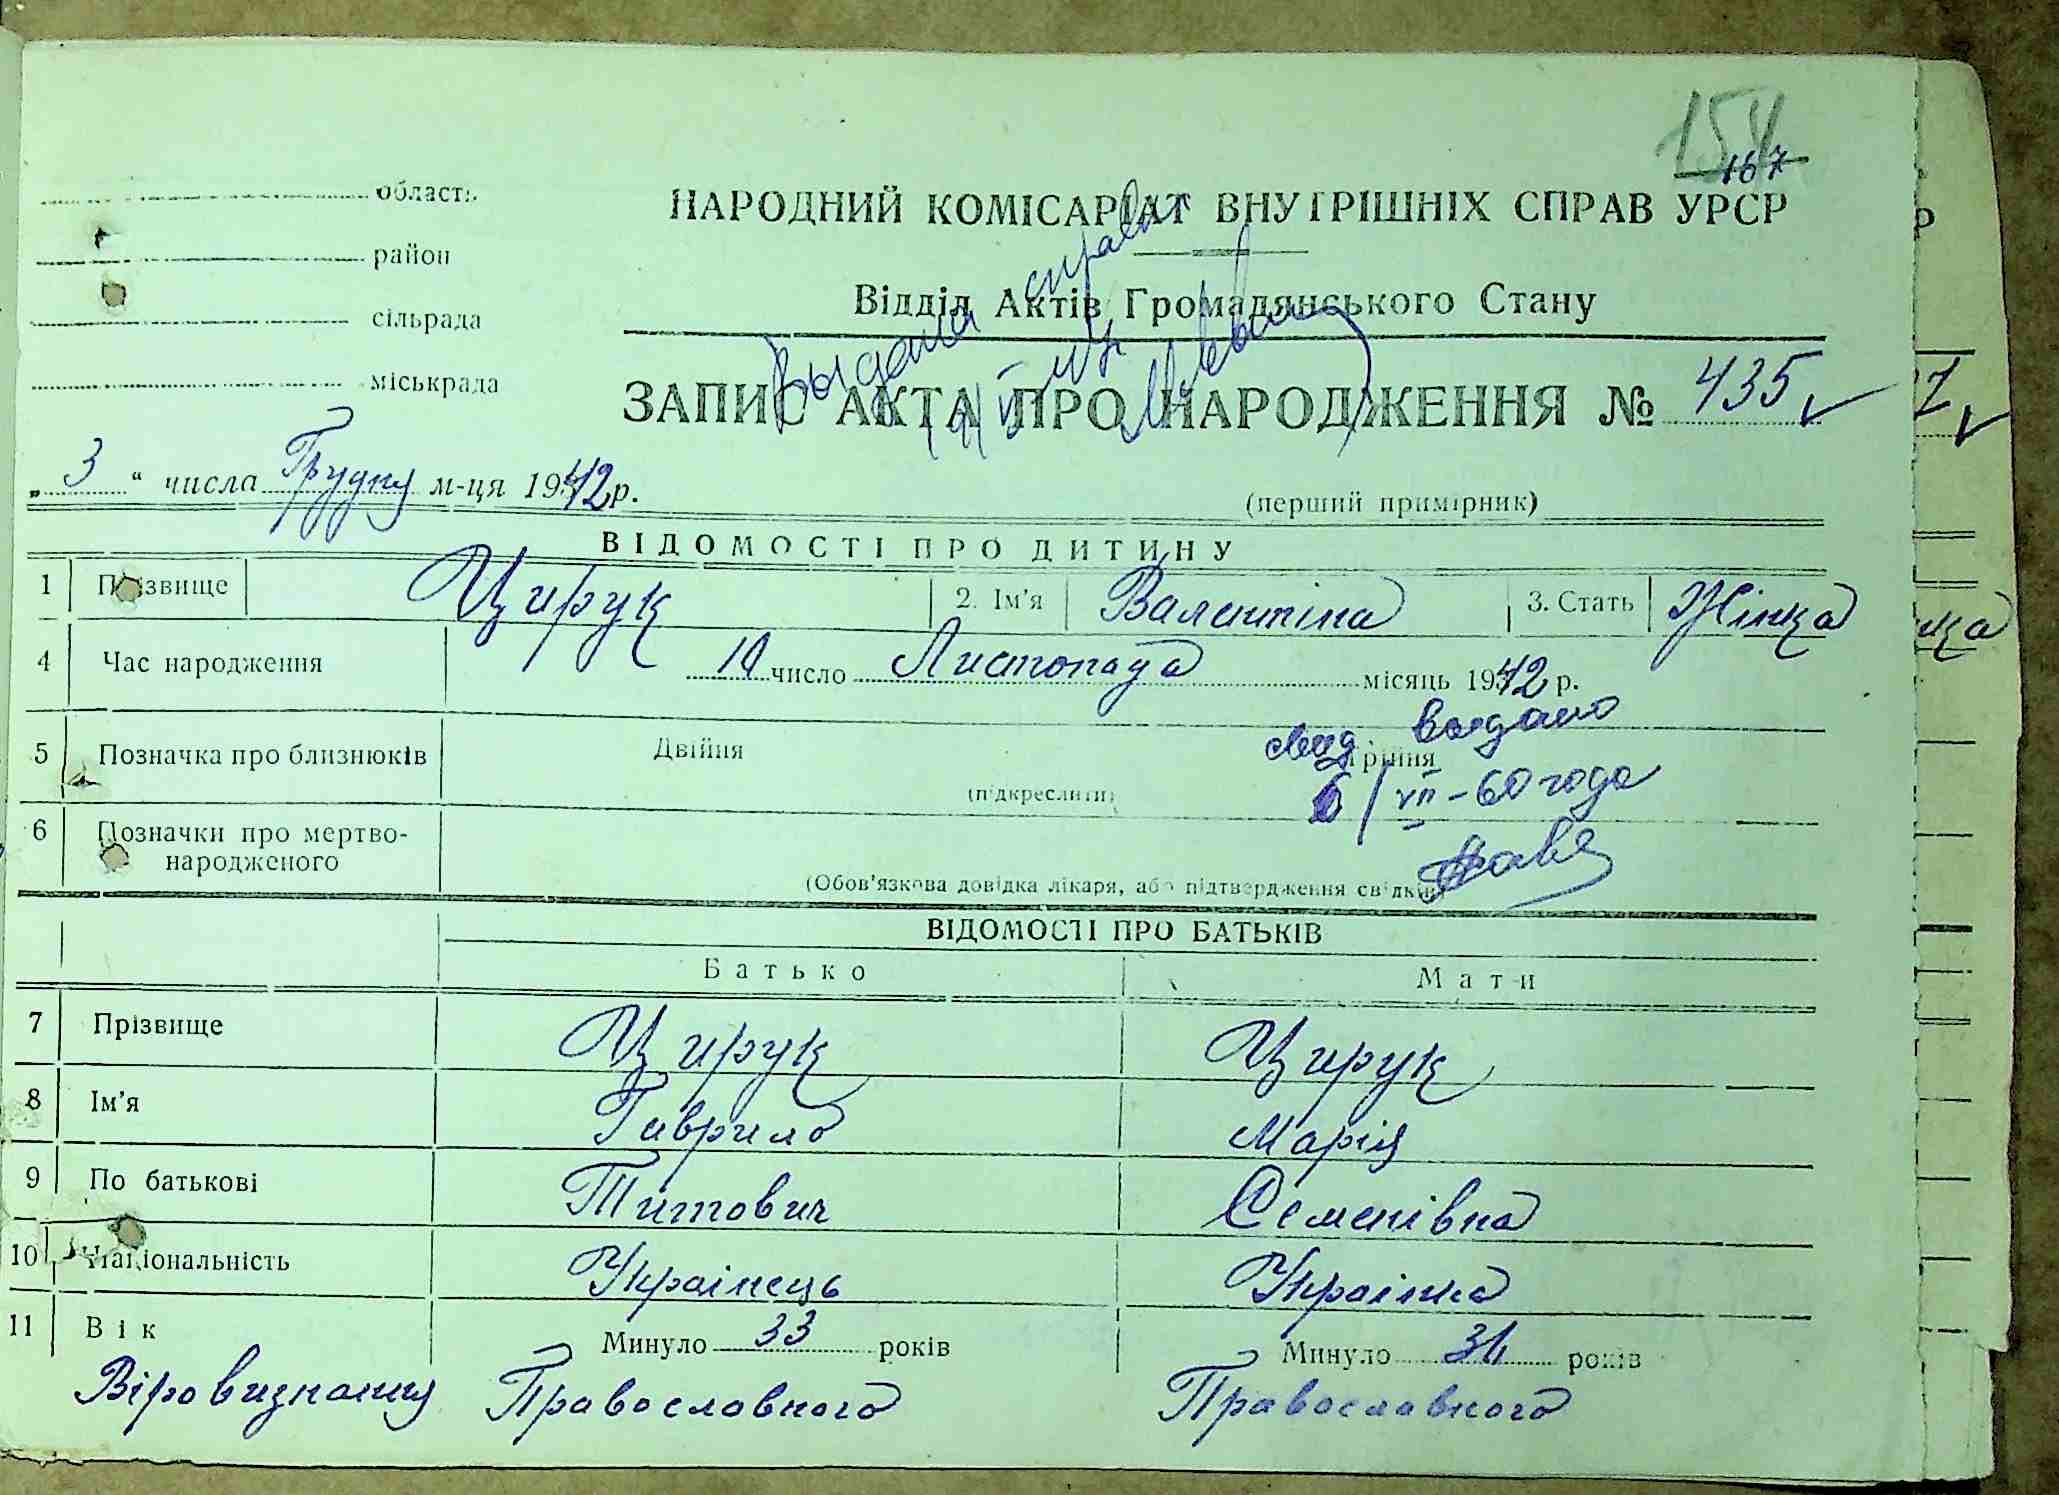 154
167
область
район
сільрада
міськрада
НАРОДНИЙ КОМІСАРІАТ ВНУТРІШНІХ СПРАВ УРСР
Відділ Актів Громадянського Стану
Выдана справка
ЗАПИС АКТА ПРО НАРОДЖЕННЯ № 435
„ 3 “ числа Грудня м-ця 1942 р.
(перший примірник)
ВІДОМОСТІ ПРО ДИТИНУ
1 Прізвище Цирук 2. Ім'я Валентіна 3. Стать Жінка
4 Час народження 10 число Листопада місяць 1942 р.
5 Позначка про близнюків Двійня Трійня
(підкреслити)
свид. выдано
6/VII-60 года
6 Позначки про мертвонародженого
(Обов'язкова довідка лікаря, або підтвердження свідків)
ВІДОМОСТІ ПРО БАТЬКІВ
Батько Мати
7 Прізвище Цирук Цирук
8 Ім'я Гаврило Марія
9 По батькові Титович Семенівна
10 Національність Українець Українка
11 Вік Минуло 33 років Минуло 31 років
Віровизнання Православного Православного